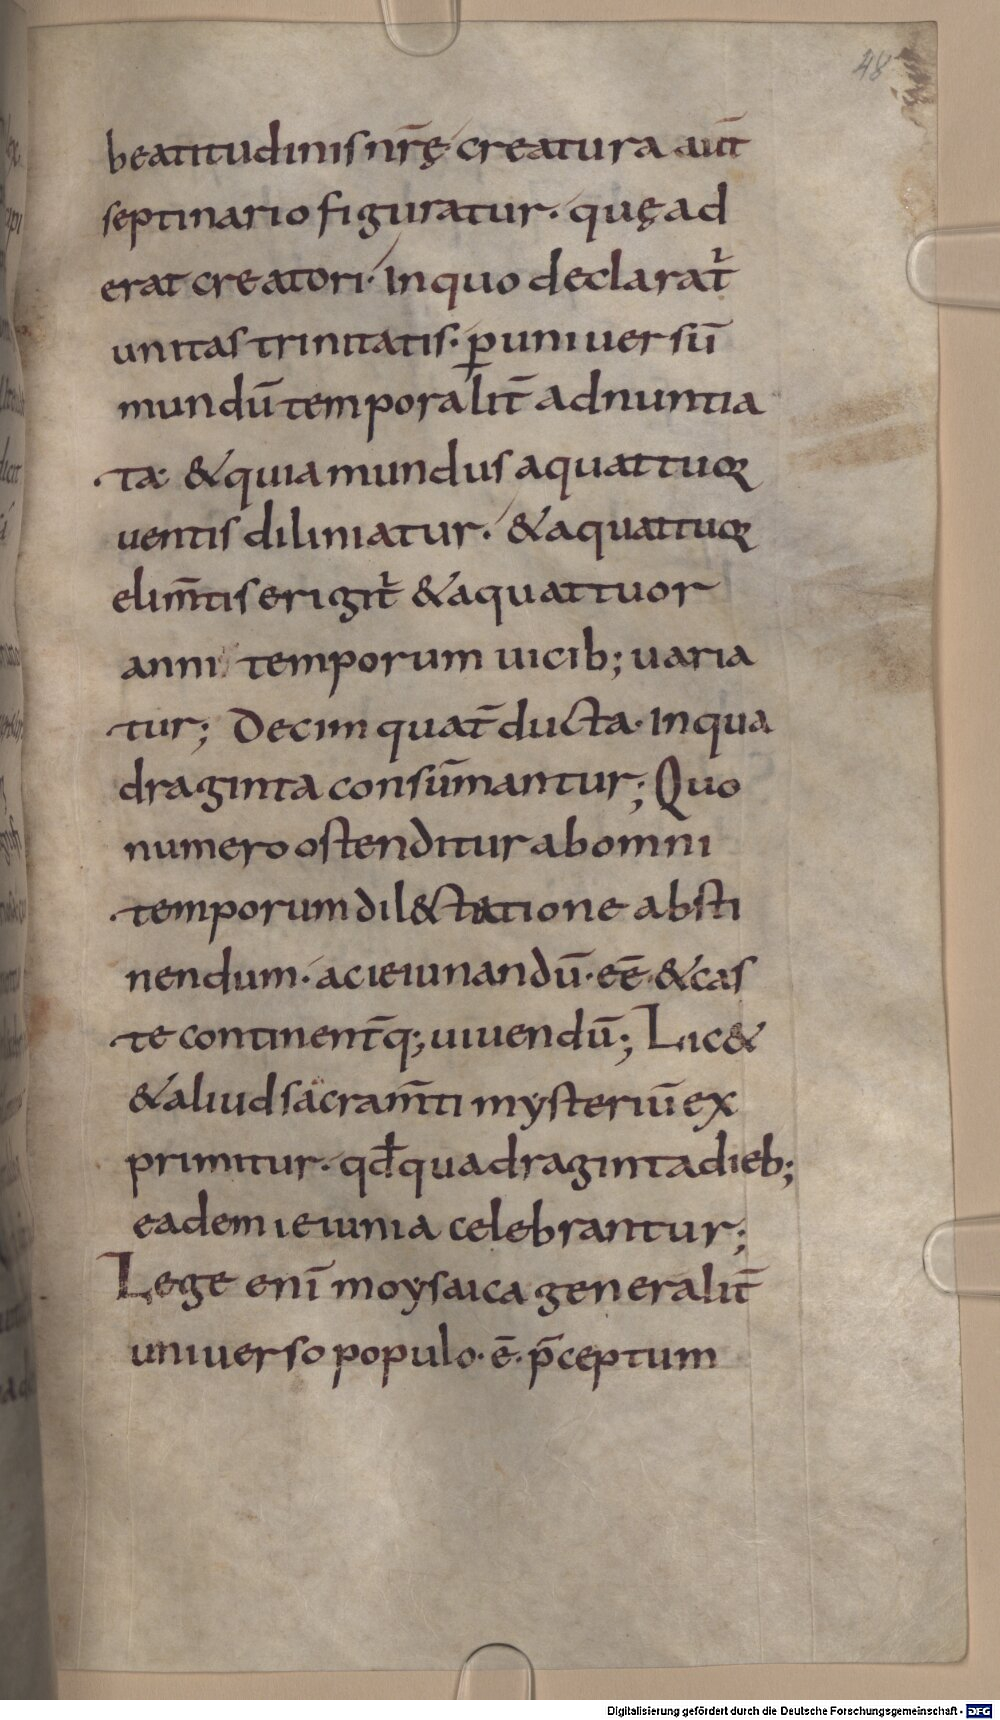 48
beatitudinis nr̄ę· creatura aut̄
septinario figuratur· quę ad
erat creatori· In quo declarat᷑
unitas trinitatis· ꝑ uniuersū
mundū temporalit̄ adnuntia
ta· & quia mundus aquattuoꝝ
uentis diliniatur· & aquattuoꝝ
elim̄tis erigit᷑ & aquattuor
anni temporum uicib; uaria
tur; Decim quat̄ ducta· In qua
draginta consum̄antur; Quo
numero ostenditur ab omni
temporum dil&ctatione absti
nendum· ac ieiunandū· eē· & cas
te continent̄q; uiuendū; Lic&
& aliud sacram̄ti mẏsteriū ex
primitur· qđ quadraginta dieb;
eadem ieiunia celebrantur;
Lege enī moẏsaica generalit̄
uniuerso populo· ē· p̄ceptum
Digitalisierung gefördert durch die Deutsche Forschungsgemeinschaft - DFG